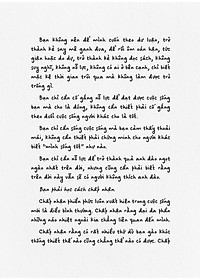 Bạn không nên để mình cuốn theo dư luận, trở
thành kẻ suy mê ganh đua, để rồi ôm oán hận, tức
giận hoặc do dự, trở thành kẻ không đọc sách, không
suy nghĩ, không nỗ lực, không có ai ở bên cạnh, chỉ biết
mặc kệ thời gian trôi qua mà không làm được trò
trống gì.
Bạn chỉ cần cố gắng nỗ lực để đạt được cuộc sống
bạn mà cho là đúng, không cần thiết phải cố gắng
theo đuổi cuộc sống người khác cho là tốt.
Bạn chỉ cần sống cuộc sống mà bạn cảm thấy thoải
mái, không cần thiết phải chứng minh cho người khác
biết "mình sống tốt" như nào.
Bạn chỉ cần nỗ lực để trở thành quả anh đào ngọt
ngào nhất trên đời, nhưng cũng cần phải biết rằng
trên đời này vẫn sẽ có người không thích anh đào.
Bạn phải học cách chấp nhận
Chấp nhận phiền phức luôn xuất hiện trong cuộc sống
mới là điều bình thường. Chấp nhận rằng đại đa phần
những náo nhiệt ngoài kia chẳng liên quan đến mình.
Chấp nhận rằng có rất nhiều thứ dù bạn gào khóc
thống thiết thế nào cũng chẳng thể nào có được. Chấp